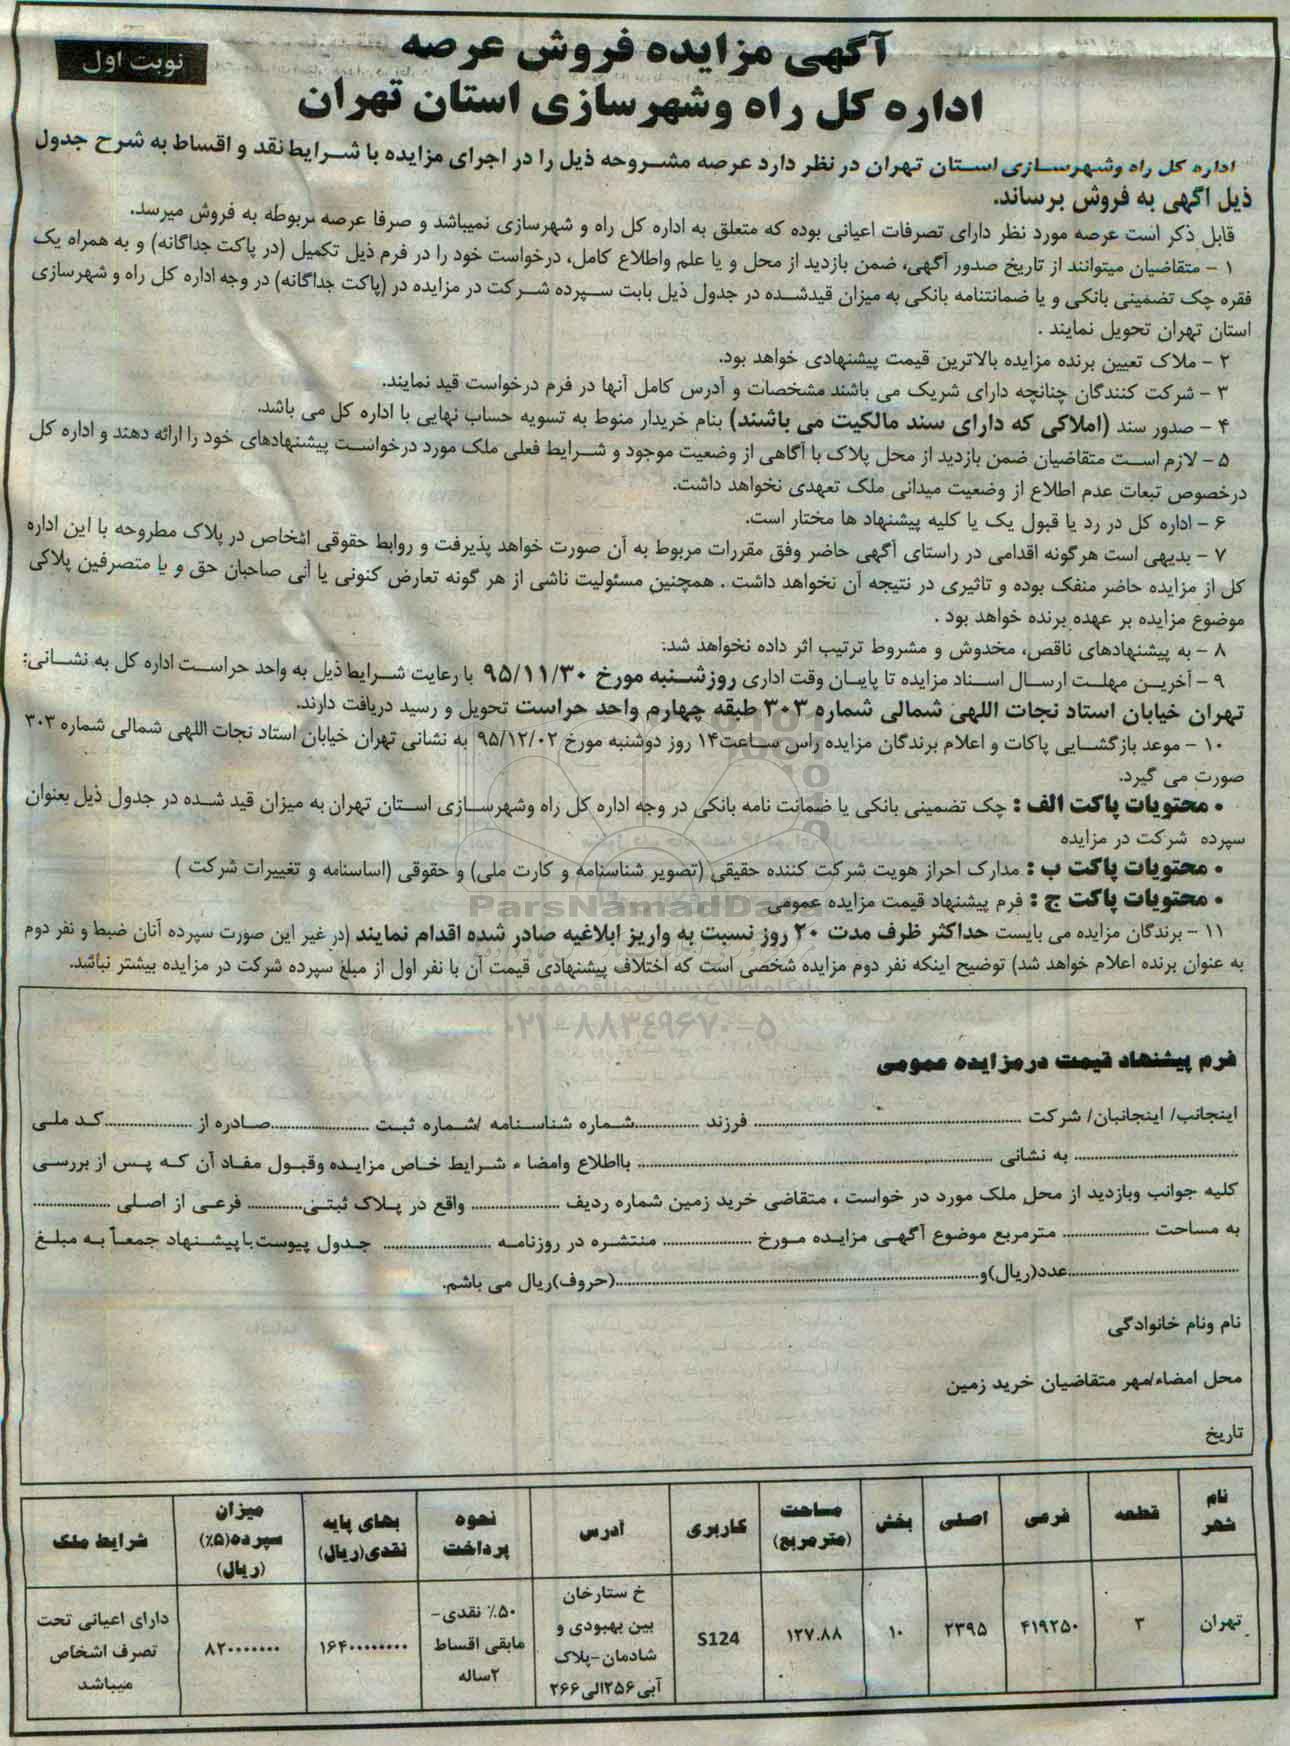 نوبت اول
آگهی مزایده فروش عرصه
اداره کل راه وشهرسازی استان تهران
اداره کل راه وشهرسازی استان تهران در نظر دارد عرصه مشروحه ذیل را در اجرای مزایده با شرایط نقد و اقساط به شرح جدول
ذیل اگهی به فروش برساند.
قابل ذکر است عرصه مورد نظر دارای تصرفات اعیانی بوده که متعلق به اداره کل راه و شهرسازی نمیباشد و صرفا عرصه مربوطه به فروش میرسد.
۱ - متقاضیان میتوانند از تاریخ صدور آگهی، ضمن بازدید از محل و یا علم واطلاع کامل، درخواست خود را در فرم ذیل تکمیل (در پاکت جداگانه) و به همراه یک
فقره چک تضمینی بانکی و یا ضمانتنامه بانکی به میزان قیدشده در جدول ذیل بابت سپرده شرکت در مزایده در (پاکت جداگانه) در وجه اداره کل راه و شهرسازی
استان تهران تحویل نمایند .
۲ - ملاک تعیین برنده مزایده بالاترین قیمت پیشنهادی خواهد بود.
۳ - شرکت کنندگان چنانچه دارای شریک می باشند مشخصات و آدرس کامل آنها در فرم درخواست قید نمایند.
۴ - صدور سند (املاکی که دارای سند مالکیت می باشند) بنام خریدار منوط به تسویه حساب نهایی با اداره کل می باشد.
۵ - لازم است متقاضیان ضمن بازدید از محل پلاک با آگاهی از وضعیت موجود و شرایط فعلی ملک مورد درخواست پیشنهادهای خود را ارائه دهند و اداره کل
درخصوص تبعات عدم اطلاع از وضعیت میدانی ملک تعهدی نخواهد داشت.
۶ - اداره کل در رد یا قبول یک یا کلیه پیشنهاد ها مختار است.
۷ - بدیهی است هرگونه اقدامی در راستای آگهی حاضر وفق مقررات مربوط به آن صورت خواهد پذیرفت و روابط حقوقی اشخاص در پلاک مطروحه با این اداره
کل از مزایده حاضر منفک بوده و تاثیری در نتیجه آن نخواهد داشت . همچنین مسئولیت ناشی از هر گونه تعارض کنونی یا آتی صاحبان حق و یا متصرفین پلاکی
موضوع مزایده بر عهده برنده خواهد بود .
۸ - به پیشنهادهای ناقص، مخدوش و مشروط ترتیب اثر داده نخواهد شد:
۹ - آخرین مهلت ارسال اسناد مزایده تا پایان وقت اداری روزشنبه مورخ ۹۵/۱۱/۳۰ با رعایت شرایط ذیل به واحد حراست اداره کل به نشانی:
تهران خیابان استاد نجات اللهی شمالی شماره ۳۰۳ طبقه چهارم واحد حراست تحویل و رسید دریافت دارند.
۱۰ - موعد بازگشایی پاکات و اعلام برندگان مزایده راس ساعت۱۴ روز دوشنبه مورخ ۹۵/۱۲/۰۲ به نشانی تهران خیابان استاد نجات اللهی شمالی شماره ۳۰۳
صورت می گیرد.
• محتویات پاکت الف : چک تضمینی بانکی یا ضمانت نامه بانکی در وجه اداره کل راه وشهرسازی استان تهران به میزان قید شده در جدول ذیل بعنوان
سپرده شرکت در مزایده
• محتویات پاکت ب : مدارک احراز هویت شرکت کننده حقیقی (تصویر شناسنامه و کارت ملی) و حقوقی (اساسنامه و تغییرات شرکت )
• محتویات پاکت ج : فرم پیشنهاد قیمت مزایده عمومی
ParsNamadData
۱۱ - برندگان مزایده می بایست حداکثر ظرف مدت ۲۰ روز نسبت به واریز ابلاغیه صادر شده اقدام نمایند (در غیر این صورت سپرده آنان ضبط و نفر دوم
به عنوان برنده اعلام خواهد شد) توضیح اینکه نفر دوم مزایده شخصی است که اختلاف پیشنهادی قیمت آن با نفر اول از مبلغ سپرده شرکت در مزایده بیشتر نباشد.
۰۲۱-۸۸۳۴۹۶۷۰-۵
فرم پیشنهاد قیمت درمزایده عمومی
اینجانب/ اینجانبان/ شرکت .......... فرزند ..........شماره شناسنامه /شماره ثبت ..........صادره از ..........کد ملی
.......... به نشانی .......... بااطلاع وامضا ء شرایط خاص مزایده وقبول مفاد آن که پس از بررسی
کلیه جوانب وبازدید از محل ملک مورد در خواست ، متقاضی خرید زمین شماره ردیف .......... واقع در پلاک ثبتی.......... فرعی از اصلی ..........
به مساحت .......... مترمربع موضوع آگهی مزایده مورخ .......... منتشره در روزنامه .......... جدول پیوست با پیشنهاد جمعاً به مبلغ
..........عدد(ریال)و..........(حروف)ریال می باشم.
نام ونام خانوادگی
محل امضاء/مهر متقاضیان خرید زمین
تاریخ
نام شهر قطعه فرعی اصلی بخش مساحت (مترمربع) کاربری آدرس نحوه پرداخت بهای پایه نقدی(ریال) میزان سپرده(۵٪) (ریال) شرایط ملک
تهران ۳ ۴۱۹۲۵۰ ۲۳۹۵ ۱۰ ۱۲۷.۸۸ S124 خ ستارخان بین بهبودی و شادمان-پلاک آبی۲۵۶الی۲۶۶ ۵۰٪ نقدی- مابقی اقساط ۲ساله ۱۶۴۰۰۰۰۰۰۰۰ ۸۲۰۰۰۰۰۰۰ دارای اعیانی تحت تصرف اشخاص میباشد